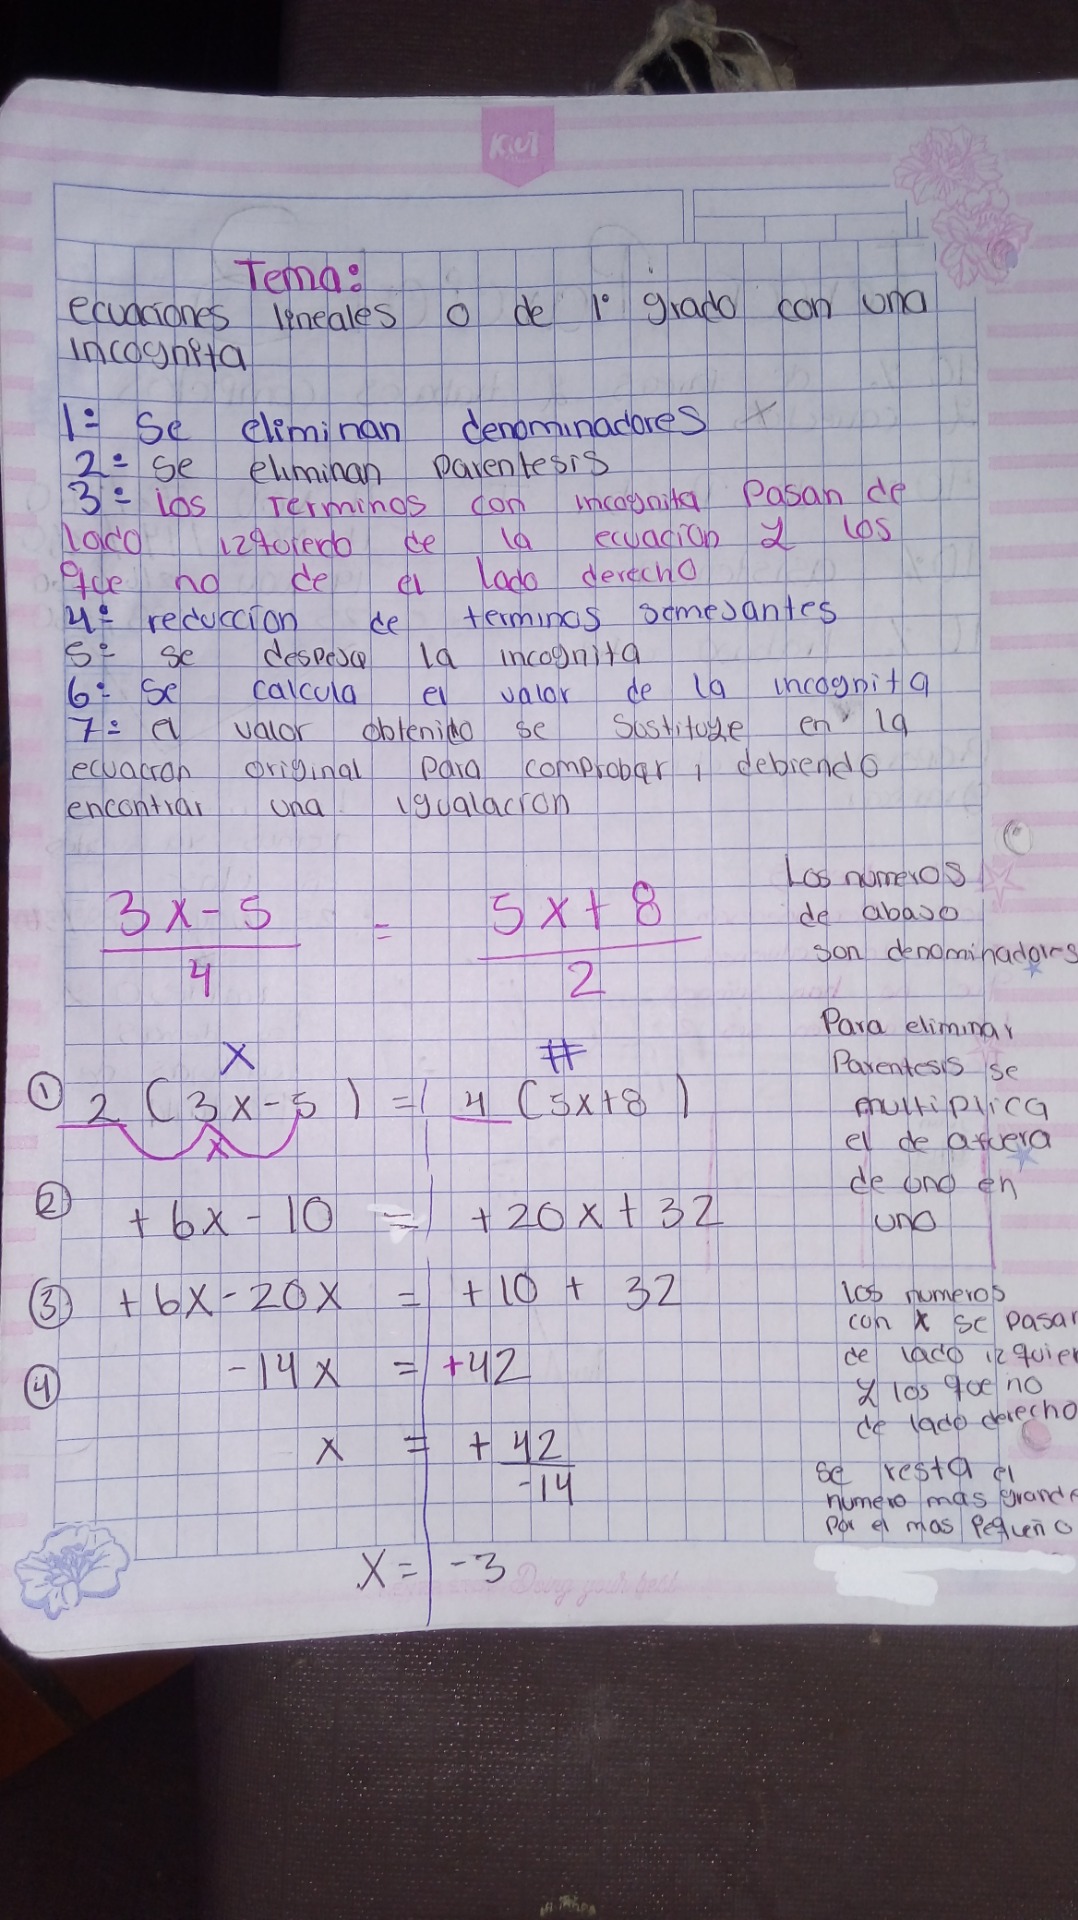 Kiut
Tema:
ecuaciones lineales o de 1° grado con una
incognita
1º Se eliminan denominadores x
2º se eliminan parentesis
3º los terminos con incognita Pasan de
lado izquierdo de la ecuacion y los
que no de el lado derecho
4º reduccion de terminos semejantes
5º se despeja la incognita
6º se calcula el valor de la incognita
7º el valor obtenido se sostituye en la
ecuacion original para comprobar, debiendo
encontrar una igualacion
3x-5 = 5x+8
4 2
Los numeros
de abajo
son denominadores
x #
① 2 (3x-5) = 4 (5x+8)
x
Para eliminar
Parentesis se
multiplica
el de afuera
de uno en
uno
② +6x-10 = +20x+32
③ +6x-20x = +10 + 32
④ -14x = +42
x = + 42
-14
x = -3
los numeros
con x se pasar
de lado izquier
y los que no
de lado derecho
se resta el
numero mas grande
por el mas Pequeño
Doing your best